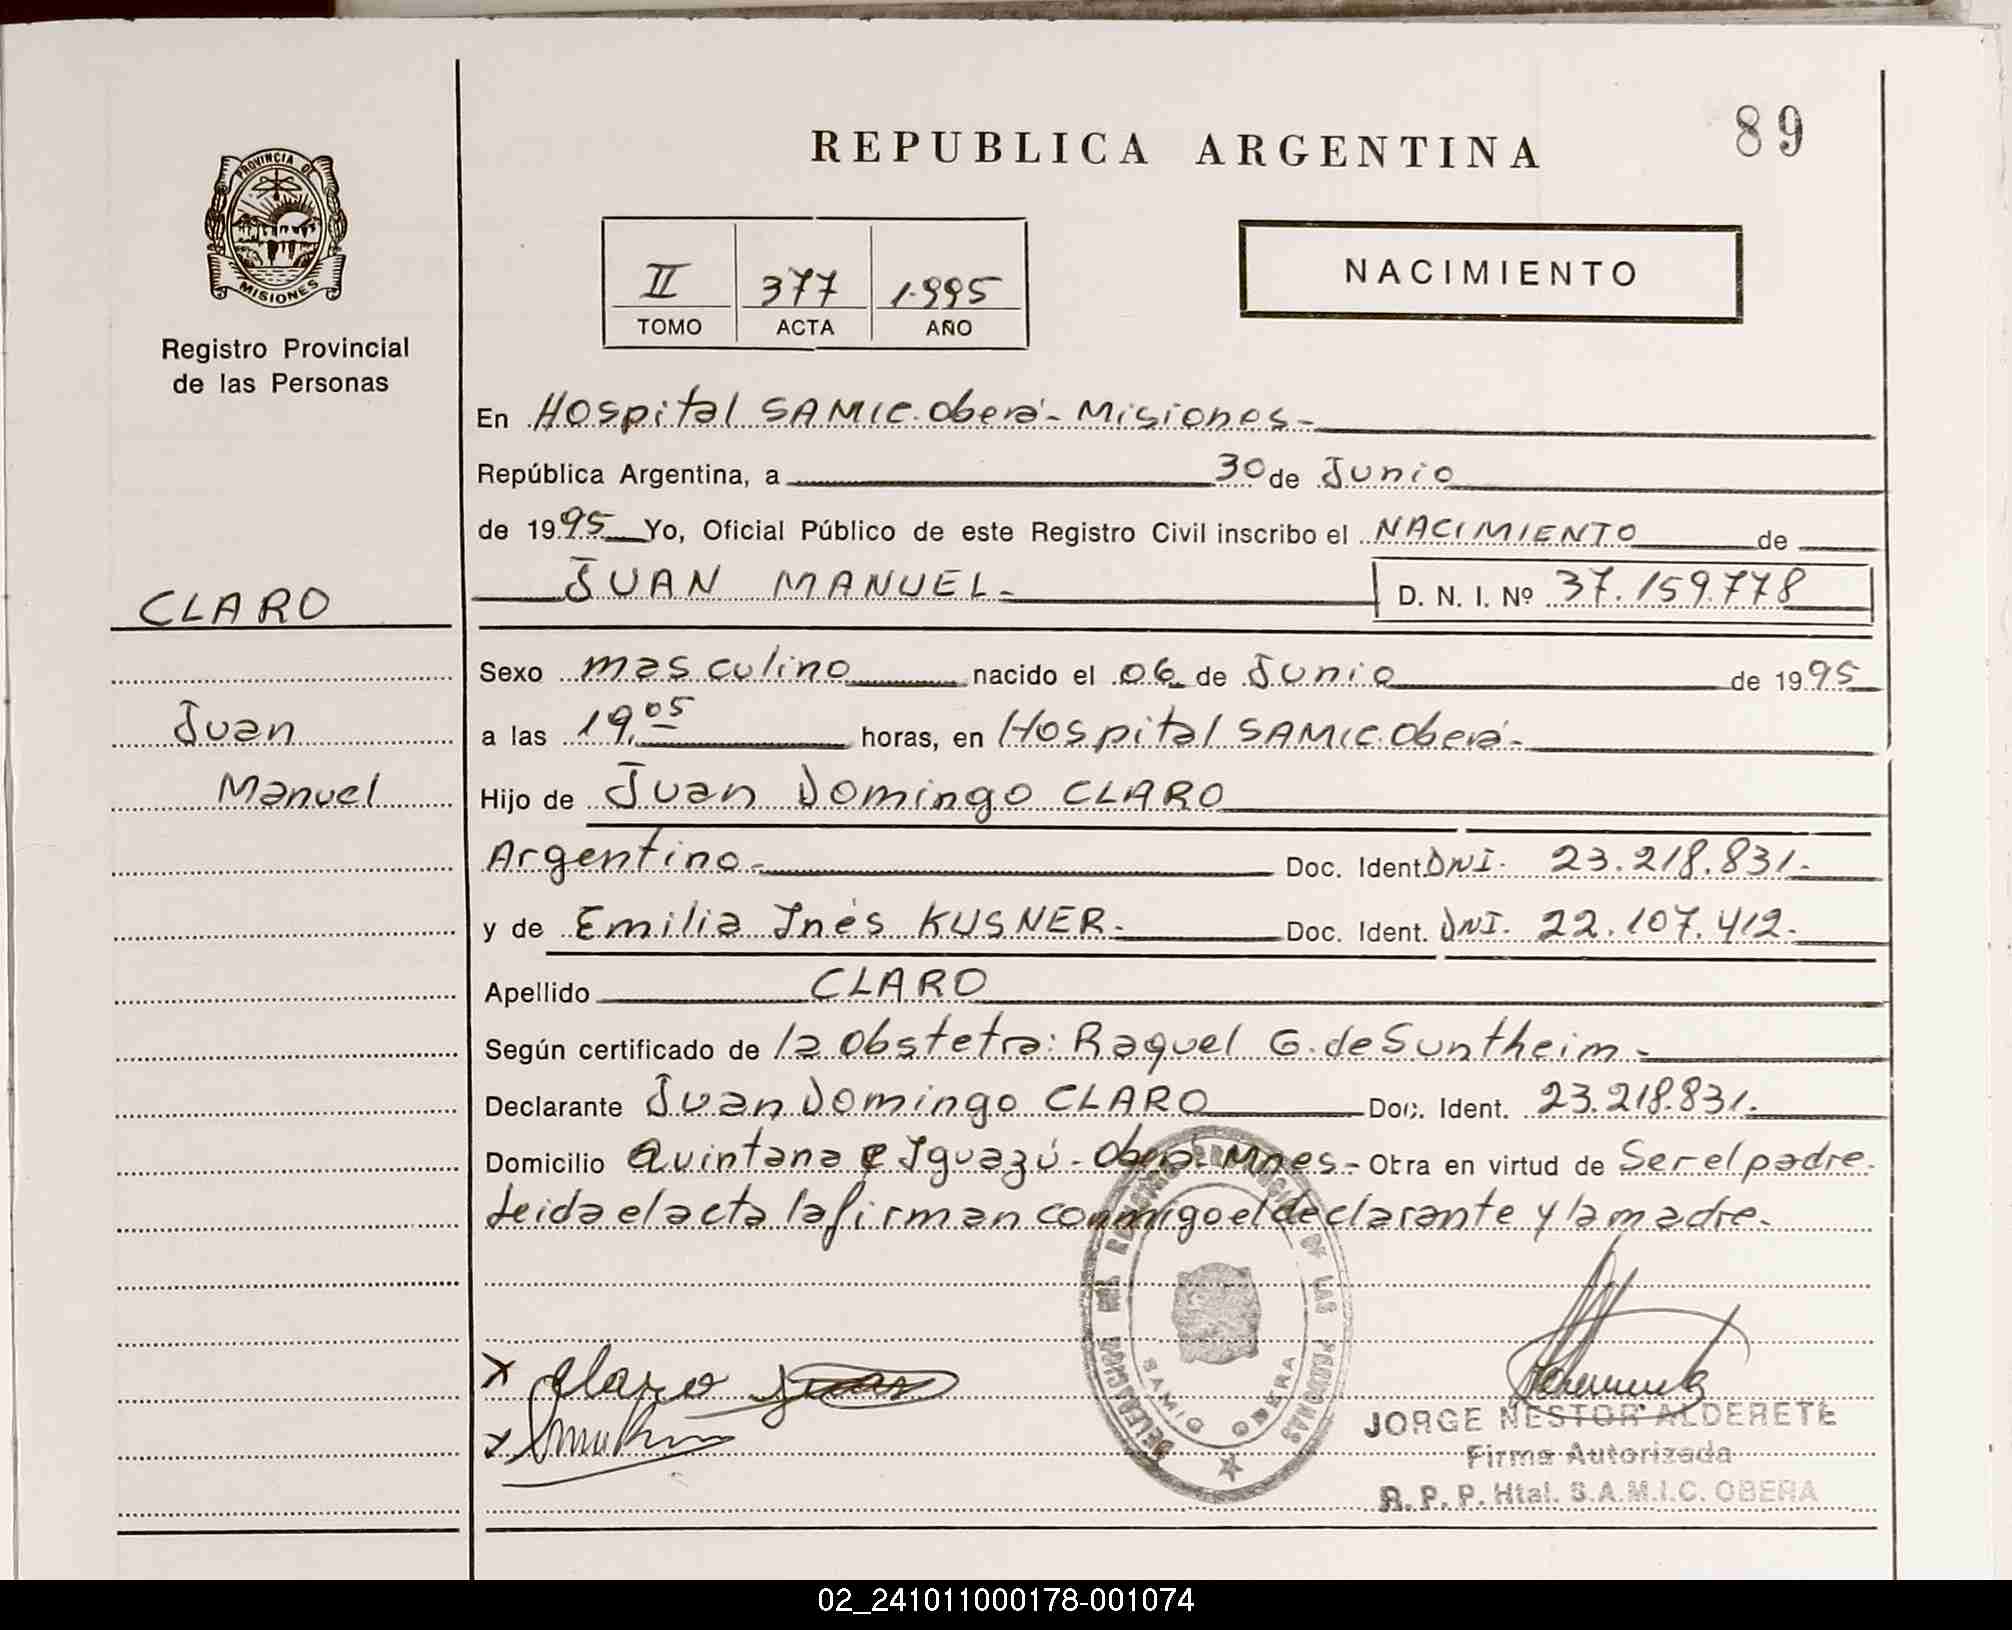 89
REPUBLICA ARGENTINA
PROVINCIA DE
MISIONES
Registro Provincial
de las Personas
II 377 1.995
TOMO ACTA AÑO
NACIMIENTO
En Hospital SAMIC. Oberá - Misiones -
República Argentina, a 30 de Junio
de 1995 Yo, Oficial Público de este Registro Civil inscribo el NACIMIENTO de
JUAN MANUEL - D. N. I. Nº 37.159.778
CLARO
Juan
Manuel
Sexo masculino nacido el 06 de Junio de 1995
a las 19,05 horas, en Hospital SAMIC. Oberá -
Hijo de Juan Domingo CLARO
Argentino - Doc. Ident. DNI. 23.218.831.-
y de Emilia Inés KUSNER.- Doc. Ident. DNI. 22.107.412.-
Apellido CLARO
Según certificado de la Obstetra: Raquel G. de Suntheim -
Declarante Juan Domingo CLARO Doc. Ident. 23.218.831.
Domicilio Quintana e Iguazú - Oberá - Mnes.- Obra en virtud de Ser el padre.
Leida el acta la firman conmigo el declarante y la madre.-
DELEGACION DEL REGISTRO PROVINCIAL DE LAS PERSONAS
SAMIC OBERA
x Claro Juan
x
JORGE NESTOR ALDERETE
Firma Autorizada
R. P. P. Htal. S.A.M.I.C. OBERA
02_241011000178-001074